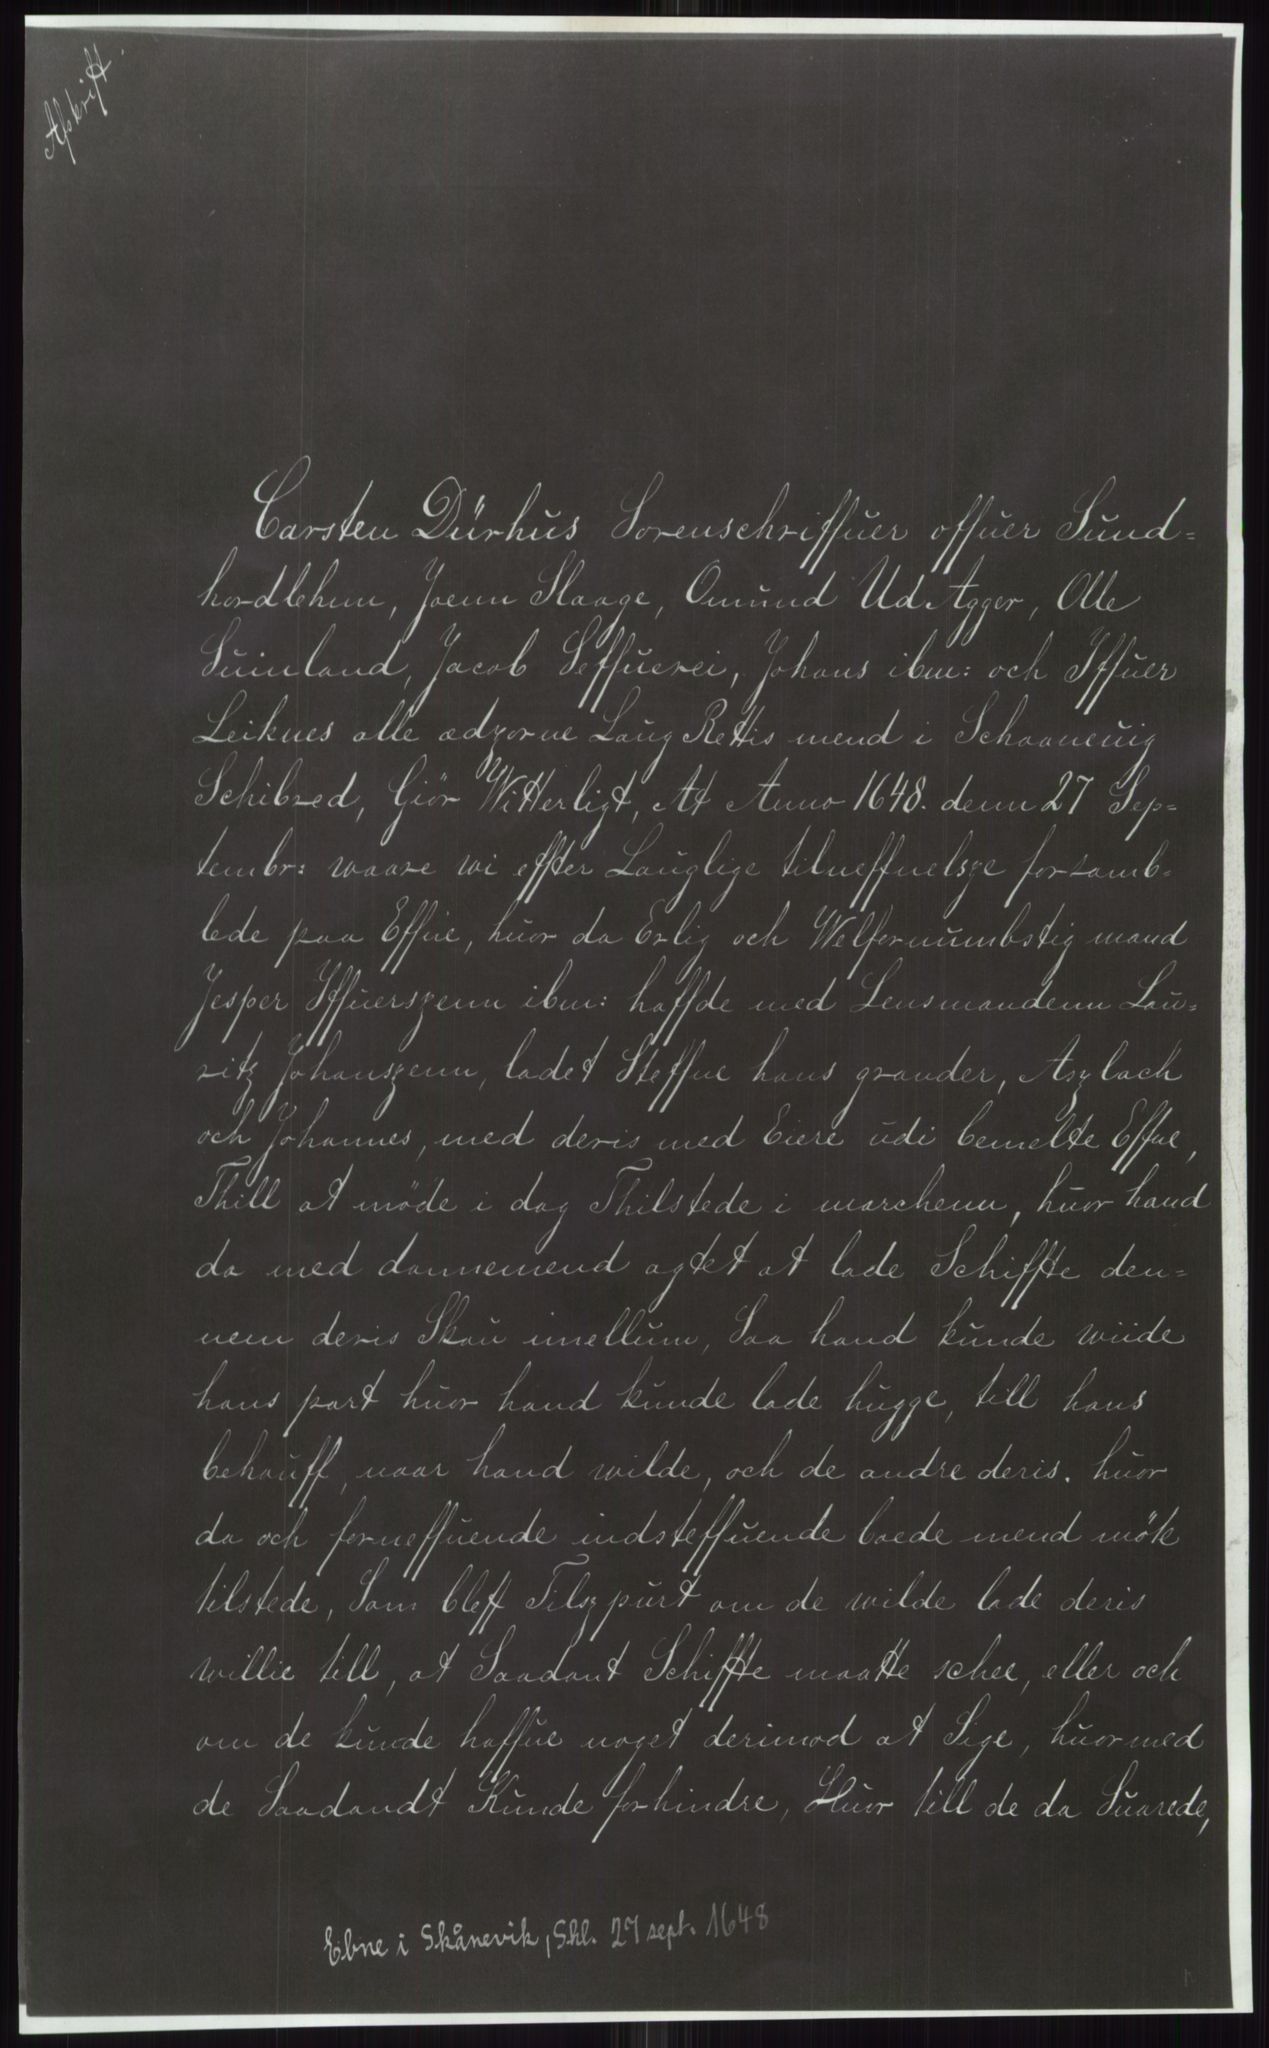 Afskrift.
Carsten Dürhüs Sorenschriffüer offüer Sünd=
hordlehnn, Joenn Slaage, Omünd Ud Agger, Olle
Süinland, Jacob Seffüerei, Johans ibm: och Iffüer
Leiknes alle edzorne Laug Rettis mend i Schaaneüig
Schibred, Giör Witterligt, At Anno 1648. denn 27 Sep=
tembr: waare wi effter Laüglige tilneffnelsze forsamb=
lede paa Effne, hüor da Erlig och Welfornümbstig mand
Jesper Iffüerszenn ibm: haffde med Lensmandenn Lau=
ritz Johanszenn, ladet Steffne hans grander, Aszlach
och Johannes, med deris med Eiere üdi bemelte Effne,
Thill at möde i dag Thilstede i marchenn, hüor hand
da med dannemend agtet at lade Schiffte den=
nem deris Skaü imellüm, Saa hand künde wiide
hans part hüor hand künde lade hügge, till hans
behoüff, naar hand wilde, och de andre deris. hüor
da och forneffüende indsteffüende baede mend mötte
tilstede, Som bleff Tilszpürt om de wilde lade deris
willie till, at Saadant Schiffte maatte schee, eller och
om de künde haffüe noget derimod at Sige, hüormed
de Saadandt Künde forhindre, Hüor till de da Süarede,
Ebne i Skånevik, Shl. 27 sept. 1648